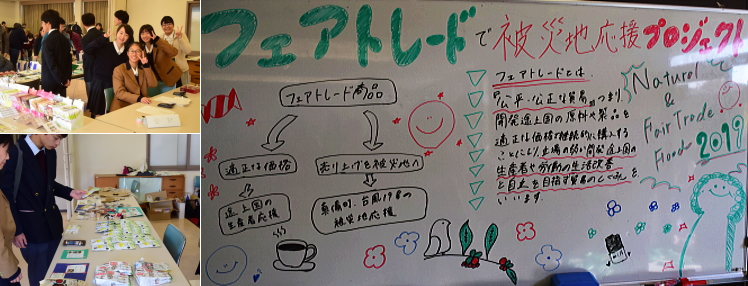 フェアトレードで被災地応援プロジェクト
フェアトレード商品
適正な価格
売り上げを被災地へ
途上国の
生産者応援
台風19号の
被災地応援
フェアトレードとは
「公平・公正な貿易」。つまり、
開発途上国の原料や製品を
適正な価格で継続的に購入する
ことにより、立場の弱い開発途上国の
生産者や労働者の生活改善
と自立を目指す貿易のしくみを
いいます。
Natural
&
Fair Trade
2019